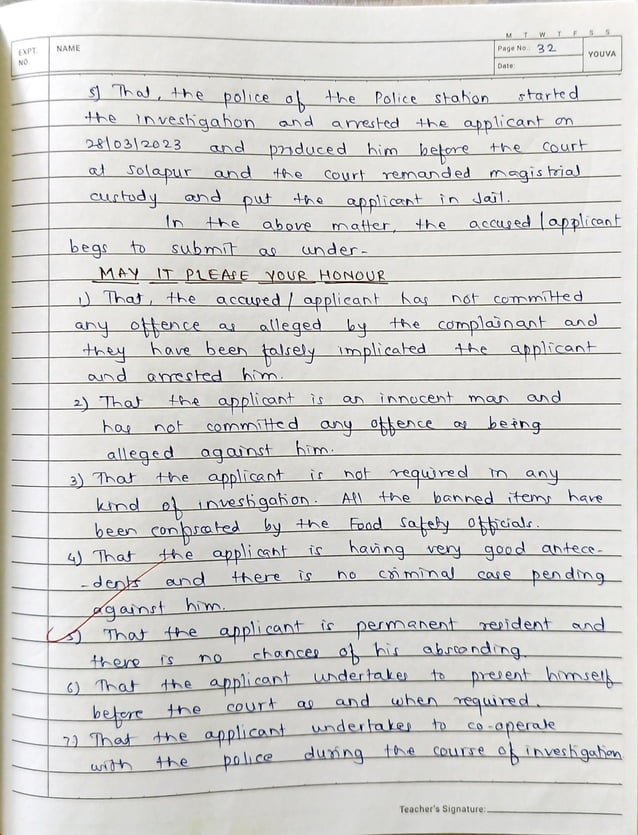 M T W T F S S
EXPT. NO.
NAME
Page No.: 32
Date:
YOUVA
5) That, the police of the Police station started
the investigation and arrested the applicant on
28/03/2023 and produced him before the court
at Solapur and the court remanded magistrial
custody and put the applicant in Jail.
In the above matter, the accused/applicant
begs to submit as under-
MAY IT PLEASE YOUR HONOUR
1) That, the accused/applicant has not committed
any offence as alleged by the complainant and
they have been falsely implicated the applicant
and arrested him.
2) That the applicant is an innocent man and
has not committed any offence as being
alleged against him.
3) That the applicant is not required in any
kind of investigation. All the banned items have
been confiscated by the Food Safety Officials.
4) That the applicant is having very good antece-
-dents and there is no criminal case pending
against him.
5) That the applicant is permanent resident and
there is no chances of his absconding.
6) That the applicant undertakes to present himself
before the court as and when required.
7) That the applicant undertakes to co-operate
with the police during the course of investigation
Teacher's Signature: